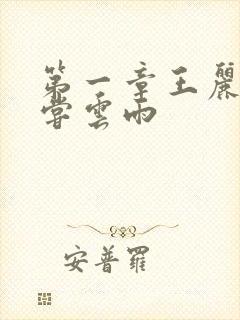 第一章王麗
嘗雲雨
安普羅